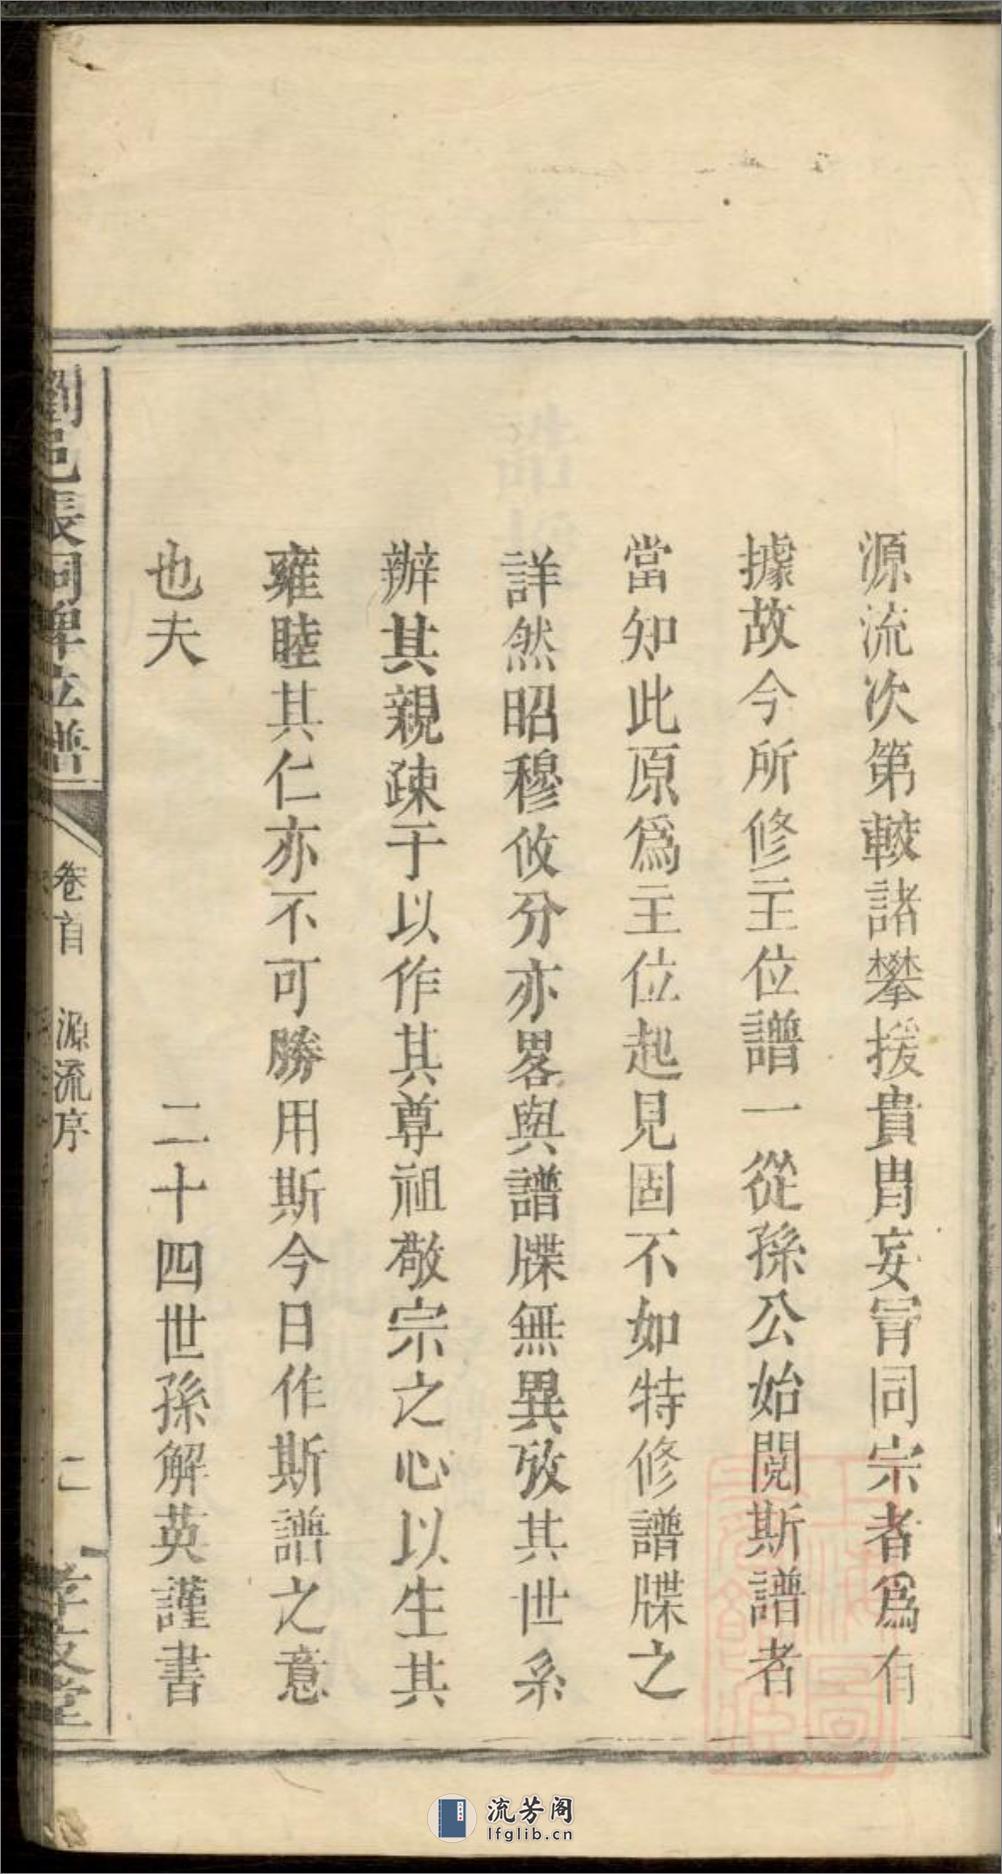 源流次第較諸攀援貴胄妄冐同宗者爲有
據故今所修主位譜一從孫公始閱斯譜者
當知此原爲主位起見固不如特修譜牒之
詳然昭穆攸分亦畧與譜牒無異攷其世系
辦其親疎于以作其尊祖敬宗之心以生其
雍睦其仁亦不可勝用斯今日作斯譜之意
也夫
二十四世孫解英謹書
瀏邑張祠牌位譜
卷首
源流序
二
孝友堂
流芳阁
lfglib.cn